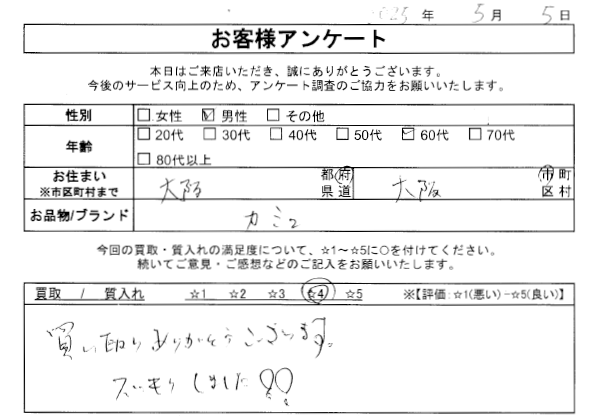 2025 年 5 月 5 日
お客様アンケート
本日はご来店いただき、誠にありがとうございます。
今後のサービス向上のため、アンケート調査のご協力をお願いいたします。
性別 □ 女性 ☑ 男性 □ その他
年齢 □ 20代 □ 30代 □ 40代 □ 50代 ☑ 60代 □ 70代
□ 80代以上
お住まい ※市区町村まで 大阪 都府県道 大阪 市町区村
お品物/ブランド カミュ
今回の買取・質入れの満足度について、☆1～☆5に○を付けてください。
続いてご意見・ご感想などのご記入をお願いいたします。
買取 / 質入れ ☆1 ☆2 ☆3 ☆4 ☆5 ※【評価:☆1(悪い)-☆5(良い)】
買い取りありがとうございます。
スッキリしました!!